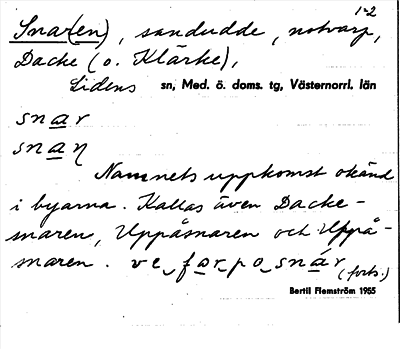 1-2
Snar(en), sandudde, notvarp,
Dacke (o. Klärke),
Lidens sn, Med. ö. doms. tg, Västernorrl. län
snar
snaɳ
Namnets uppkomst okänd
i byarna. Kallas även Dacke-
snaren, Uppåsnaren och Uppå-
snaren. ve‿far‿po‿snár (forts.)
Bertil Flemström 1955